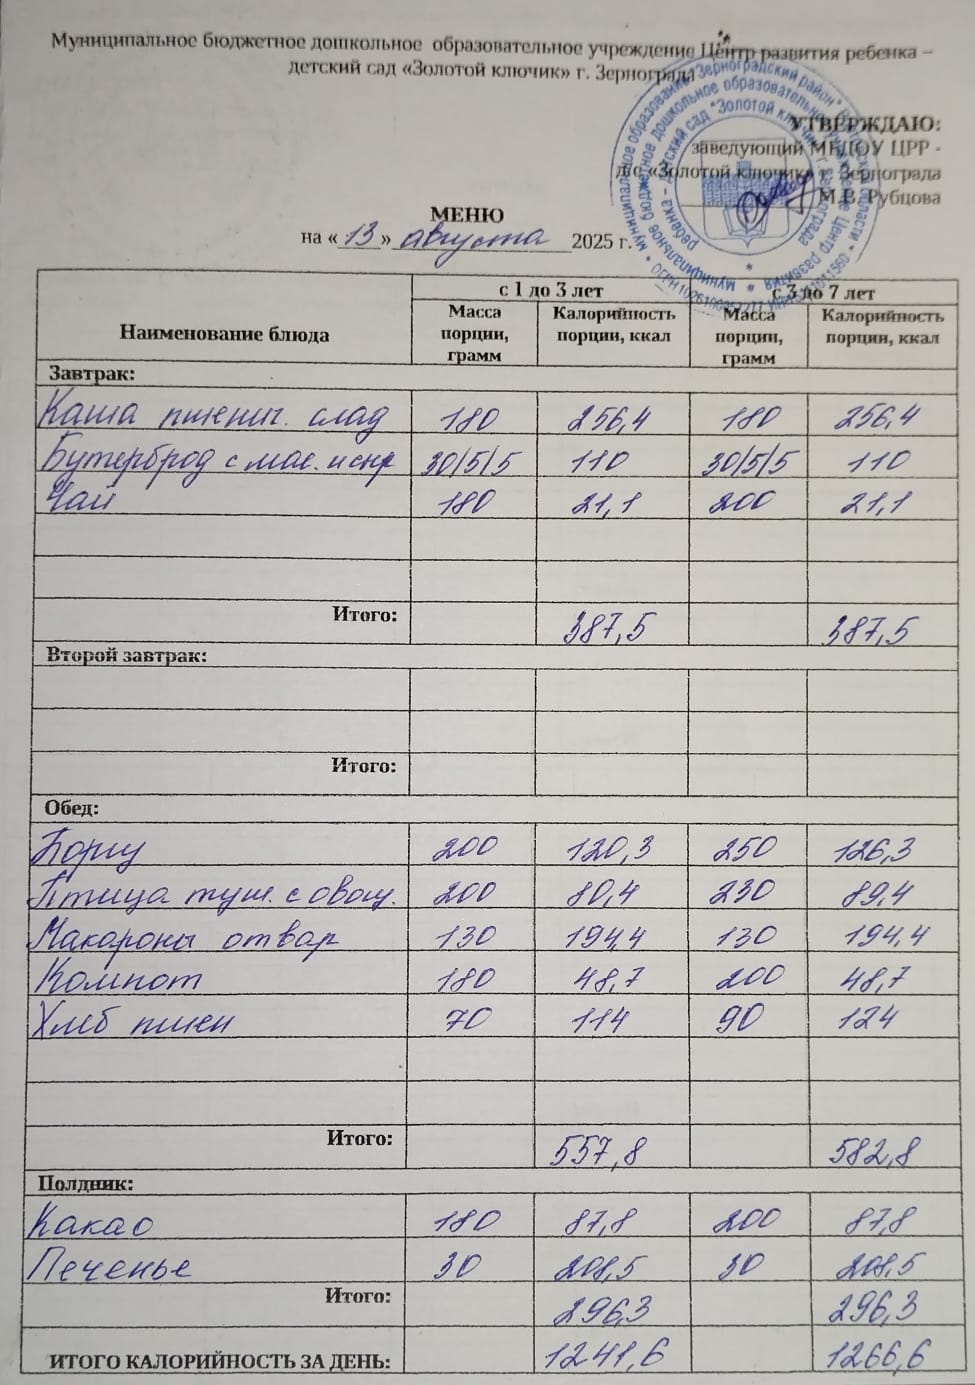 Муниципальное бюджетное дошкольное образовательное учреждение Центр развития ребенка –
детский сад «Золотой ключик» г. Зернограда
УТВЕРЖДАЮ:
заведующий МБДОУ ЦРР -
д/с «Золотой ключик» г. Зернограда
М.В. Рубцова
МЕНЮ
на «13» августа 2025 г.
Наименование блюда с 1 до 3 лет с 3 до 7 лет
Масса порции, грамм Калорийность порции, ккал Масса порции, грамм Калорийность порции, ккал
Завтрак:
Каша пшенич. слад 180 256,4 180 256,4
Бутерброд с мас. и 30/5/5 110 30/5/5 110
Чай 180 21,1 200 21,1
Итого: 387,5 387,5
Второй завтрак:
Итого:
Обед:
Борщ 200 120,3 250 126,3
Птица туш. с овощ. 200 80,4 230 89,4
Макароны отвар 130 194,4 130 194,4
Компот 180 48,7 200 48,7
Хлеб пшен 70 114 90 124
Итого: 557,8 582,8
Полдник:
Какао 180 87,8 200 87,8
Печенье 30 208,5 30 208,5
Итого: 296,3 296,3
ИТОГО КАЛОРИЙНОСТЬ ЗА ДЕНЬ: 1241,6 1266,6